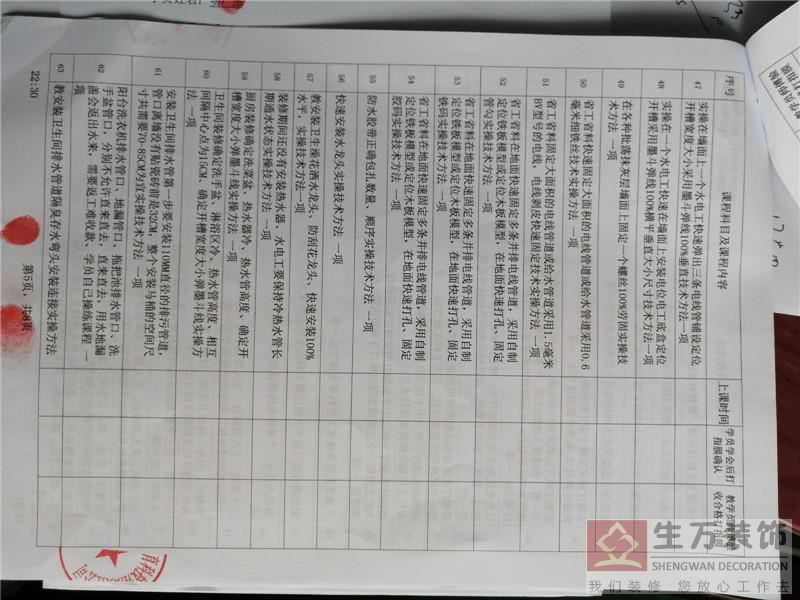 序号 课程科目及课程内容 上课时间 学员学会后打指膜确认
47 实操在墙面上一个水电工快速弹出三条电线管铺设定位
开槽宽度大小采用墨斗弹线100%垂直技术方法一项
48 实操在一个水电工快速在墙面上安装电位电工底盒定位
开槽采用墨斗弹线100%横平垂直大小尺寸技术方法一项
49 在各种批荡抹灰层墙面上固定一个螺丝100%劳固实操技
术方法 一项
50 省工省料快速固定大面积的电线管道或给水管道采用0.6
毫米细铁丝技术实操方法 一项
51 省工省料固定大面积的电线管道或给水管道采用1.5毫米
BV型号的电线,电线剥皮快速固定技术方法 一项
52 省工省料在地面快速固定多条并排电线管道,采用自制
定位铁板模型或定位木板模型,在地面快速打孔、固定
管勾实操技术方法 一项
53 省工省料在地面快速固定多条并排电线管道,采用自制
定位铁板模型或定位木板模型,在地面快速打孔、固定
铁码实操技术方法 一项
54 省工省料在地面快速固定多条并排电线管道,采用自制
定位铁板模型或定位木板模型,在地面快速打孔、固定
胶码实操技术方法 一项
55 防水胶带正确包扎数量、顺序实操技术方法 一项
56 快速安装水龙头实操技术方法 一项
57 教安装卫生澡花洒水龙头、防刮花龙头、快速安装100%
水平,实操技术方法一项
58 装修期间还没有安装热水器、水电工要保持冷热水管长
期通水状态实操技术方法 一项
59 厨房装修确定洗菜盆、热水器冷、热水管高度、确定开
槽宽度大小弹墨斗线实操方法 一项
60 卫生间装修确定洗手盆、淋浴区冷、热水管高度、相互
间隔中心点为15CM、确定开槽宽度大小弹墨斗线实操方
法 一项
61 安装卫生间排水管第一步要安装110MM直径的排污管道,
管口离墙没有贴瓷砖前是32CM,整个安装马桶的空间尺
寸共需要70-85CM为宜实操技术方法 一项
62 阳台洗衣机排水管口、地漏管口、拖把池排水管口、洗
手盆管口,分别不允许直来直去,直来直去,用水地漏
盖会返出水来,需要返工难收款,学员自己操练课程 一
63 教安装卫生间排水管道隔臭存水弯头安装连接实操方法
第5页,共8页
22:30
生万装饰
SHENGWAN DECORATION
我们装修 您放心工作去